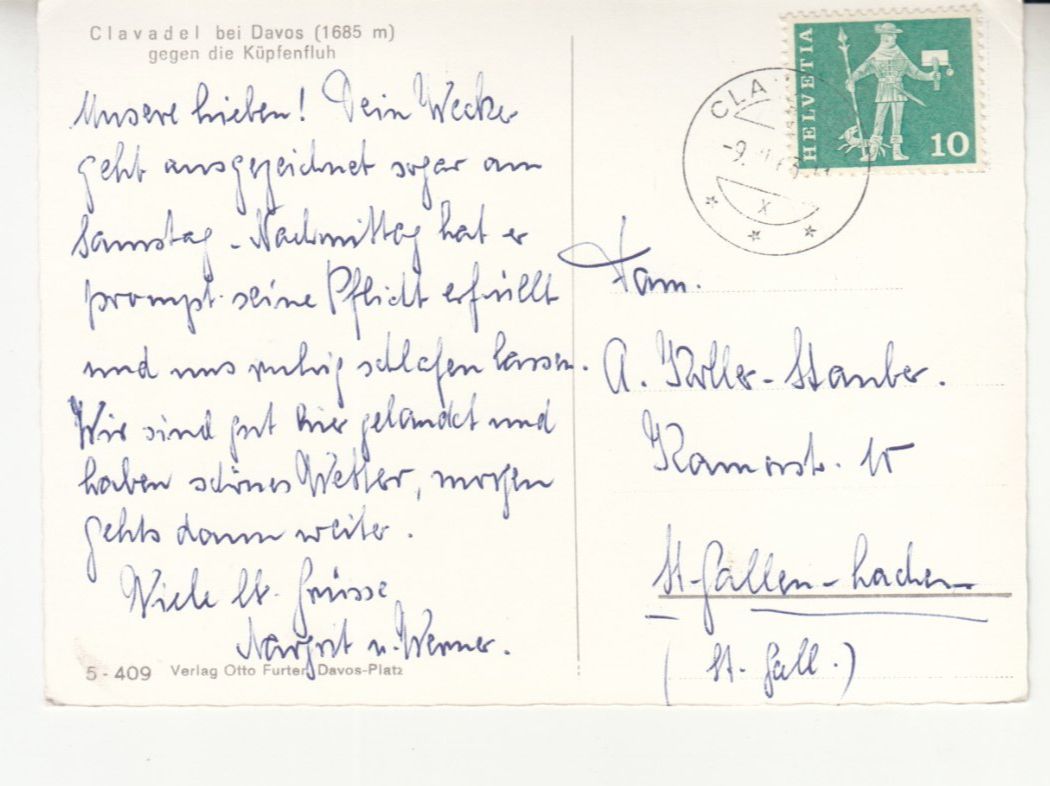 Clavadel bei Davos (1685 m)
gegen die Küpfenfluh
Unsere Lieben! Dein Wecker
geht ausgezeichnet sogar am
Samstag-Nachmittag hat er
prompt seine Pflicht erfüllt
und uns ruhig schlafen lassen.
Wir sind gut hier gelandet und
haben schönes Wetter, morgen
gehts dann weiter.
Viele lb. Grüsse
Margrit u. Werner.
5 - 409 Verlag Otto Furter, Davos-Platz
HELVETIA
10
CLA
-9.
X
Fam.
A. Koller-Stauber.
Kamorstr. 15
St-Gallen-Lachen
(St. Gall.)